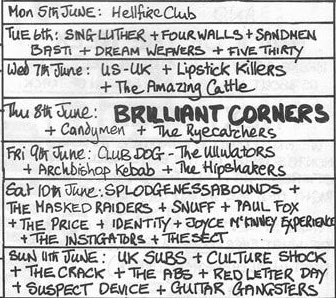 Mon 5th June: Hellfire Club
TUE 6th: SING LUTHER + FOUR WALLS + SANDMEN
BASTI + DREAM WEAVERS + FIVE THIRTY
Wed 7th June: US-UK + Lipstick Killers
+ The Amazing Cattle
Thu 8th June: BRILLIANT CORNERS
+ Candymen + The Ryecatchers
Fri 9th June: CLUB DOG - The Ululators
+ Archbishop Kebab + The Hipshakers
Sat 10th June: SPLODGENESSABOUNDS +
THE MASKED RAIDERS + SNUFF + PAUL FOX
+ THE PRICE + IDENTITY + JOYCE McKINNEY EXPERIENCE
+ THE INSTIGATORS + THE SECT
SUN 11th JUNE: UK SUBS + CULTURE SHOCK
+ THE CRACK + THE ABS + RED LETTER DAY
+ SUSPECT DEVICE + GUITAR GANGSTERS